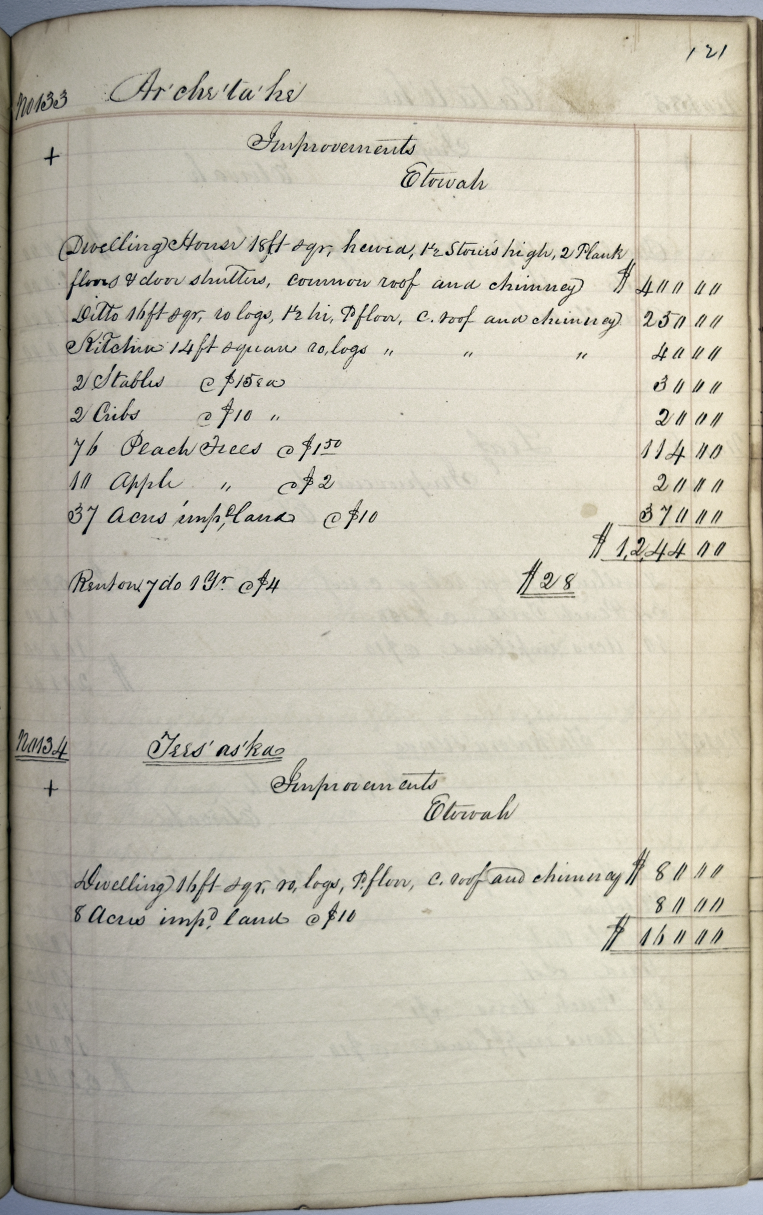 121
No 133 Ar'che'ta'he
+ Improvements
Etowah
Dwelling House 18ft sqr, hewed, 1½ Stories high, 2 Plank
floors & door shutters, common roof and chimney $400 00
Ditto 16ft sqr, ro logs, 1½ hi, P. floor, c. roof and chimney 250 00
Kitchen 14ft square ro, logs " " " 40 00
2 Stables @ $15 ea 30 00
2 Cribs @ $10 " 20 00
76 Peach Trees @ $1 50 114 00
10 Apple " @ $2 20 00
37 Acres imp.d land @ $10 370 00
$1,244 00
Rent on 7 do 1 Yr @ $4 $28
No 134 Tees'as'ka
+ Improvements
Etowah
Dwelling 16ft sqr, ro, logs, P. floor, c. roof and chimney $80 00
8 Acres imp.d land @ $10 80 00
$160 00